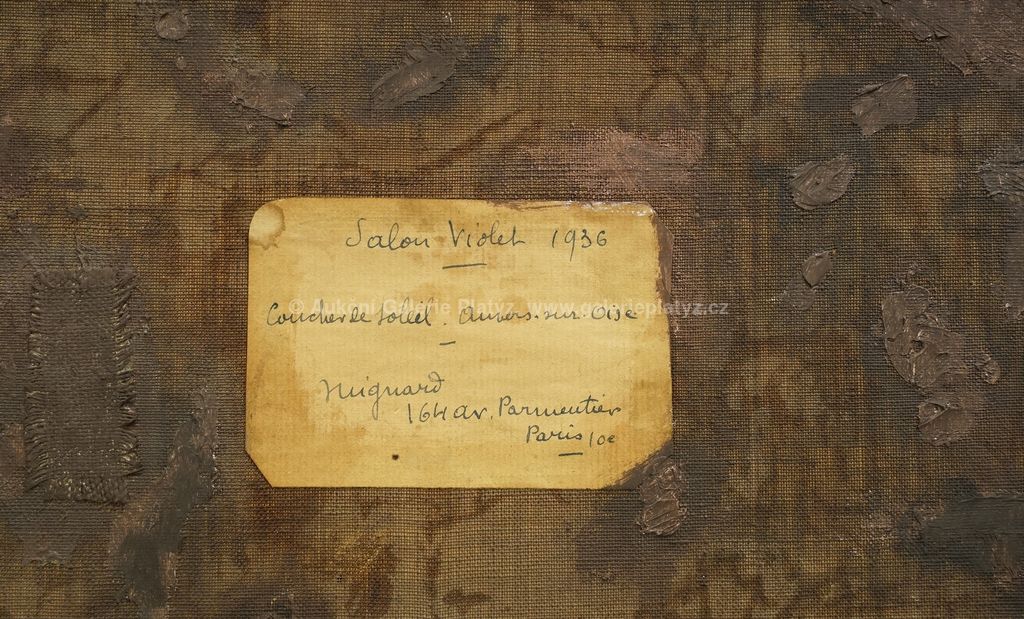 Salon Violet 1936
© Aukční Galerie Platýz, www.galerieplatyz.cz
Coucher de Soleil. Auvers-sur-Oise
Mignard
164 av. Parmentier
Paris 10e